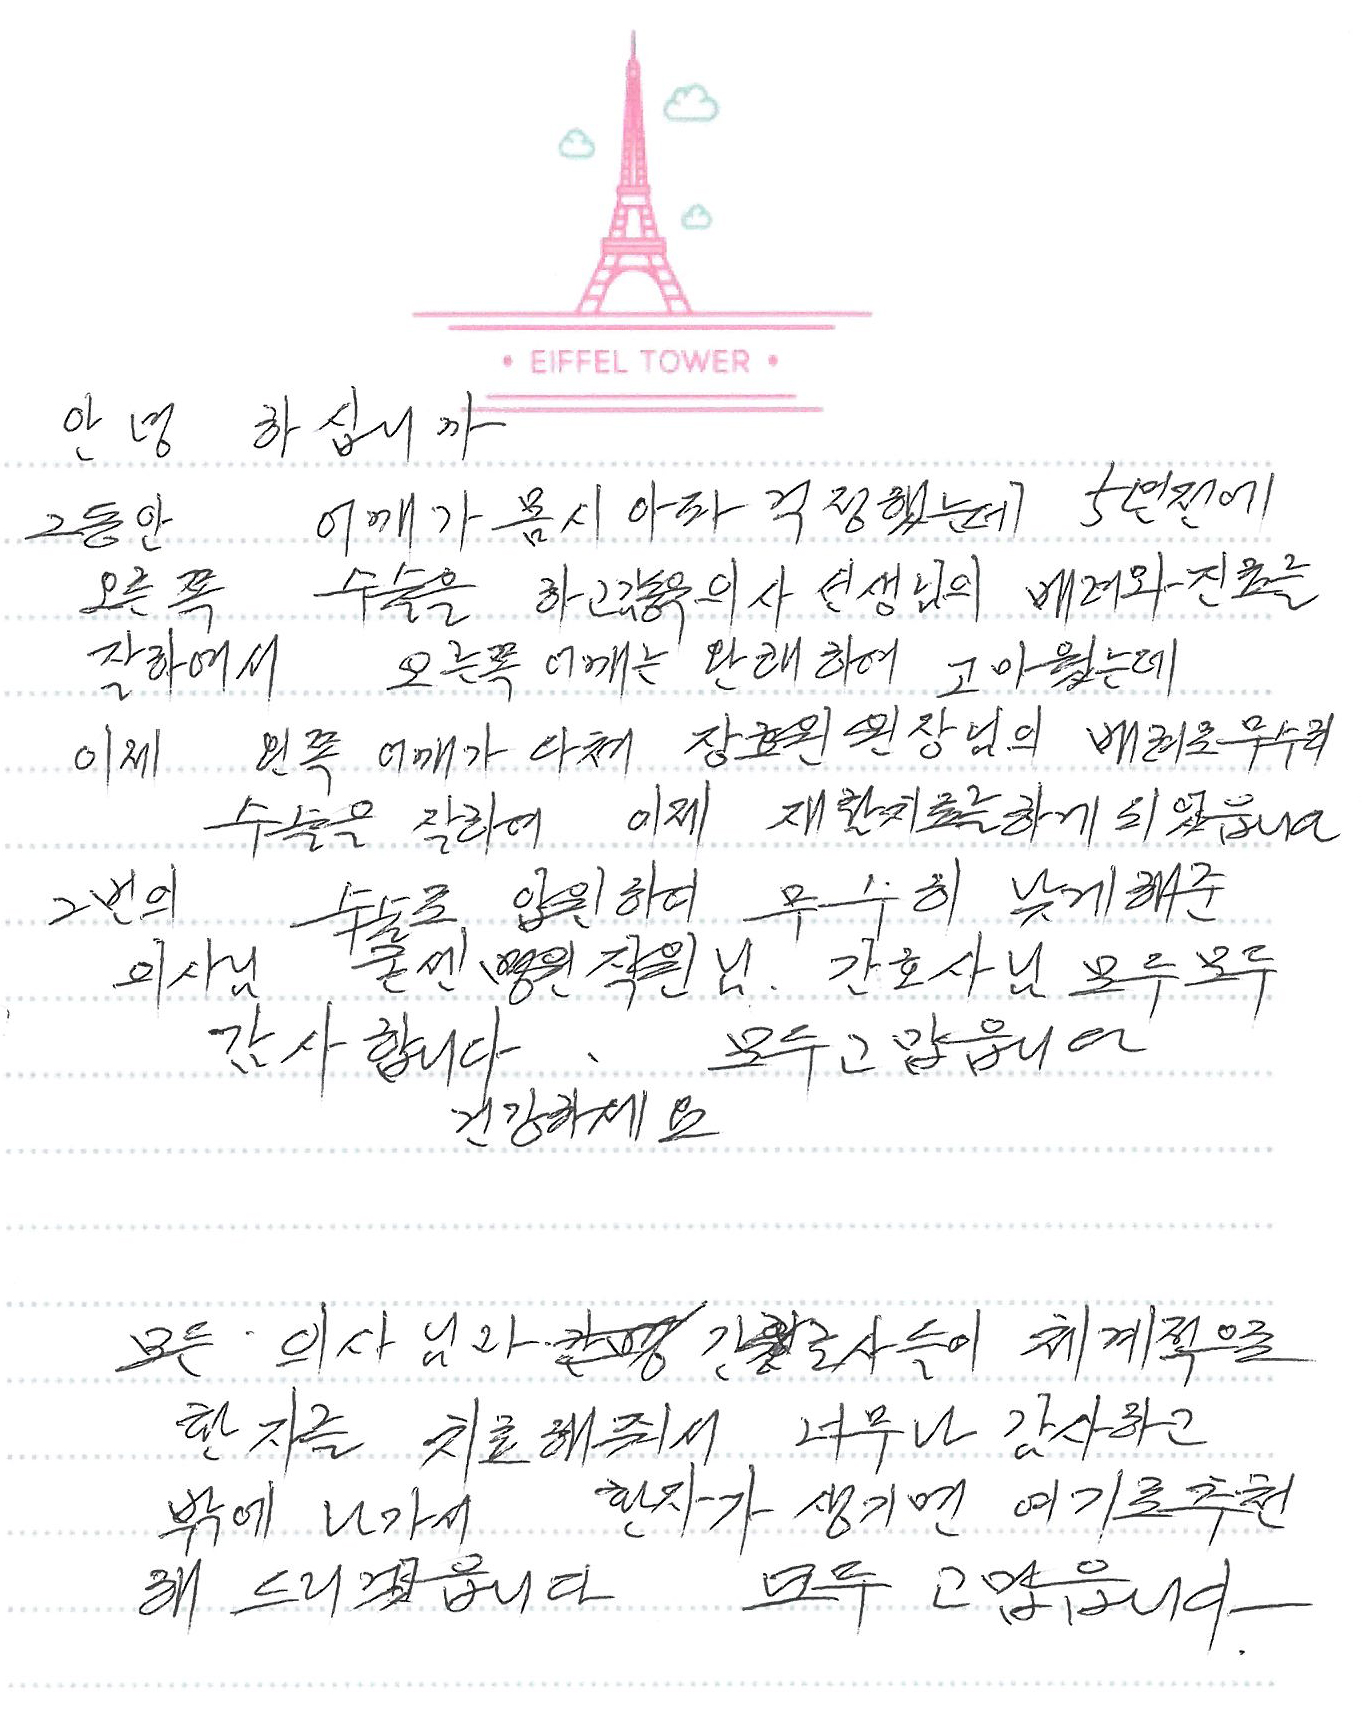 • EIFFEL TOWER •
안녕 하십니까
그동안 어깨가 몹시 아파 걱정했는데 5년전에
오른쪽 수술을 하고 의사 선생님의 배려와 진료를
잘하여서 오른쪽 어깨는 완쾌하여 고마웠는데
이제 왼쪽 어깨가 다쳐 장호원 원장님의 배려로 무수히
수술을 잘하여 이제 재활치료를하게 되였읍니다
2번의 수술로 입원하여 무수히 낫게해준
의사님 굳센병원 직원님. 간호사님 모두모두
감사합니다. 모두고맙읍니다
건강하세요
모든 의사님과 간호사들이 체계적으로
환자를 치료해줘서 너무나 감사하고
밖에 나가서 환자가 생기면 여기로추천
해 드리겠읍니다 모두 고맙읍니다.